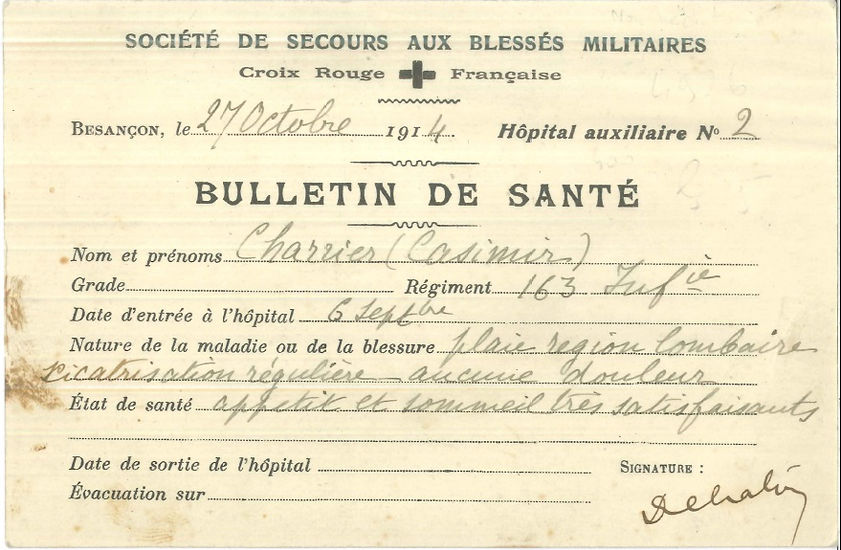 SOCIÉTÉ DE SECOURS AUX BLESSÉS MILITAIRES
Croix Rouge Française
BESANÇON, le 27 Octobre 1914. Hôpital auxiliaire No 2
BULLETIN DE SANTÉ
Nom et prénoms Charrier (Casimir)
Grade Régiment 163 Infie
Date d'entrée à l'hôpital 6 Septbre
Nature de la maladie ou de la blessure plaie region lombaire
cicatrisation régulière aucune douleur
État de santé appetit et sommeil très satisfaisants
Date de sortie de l'hôpital SIGNATURE :
Évacuation sur